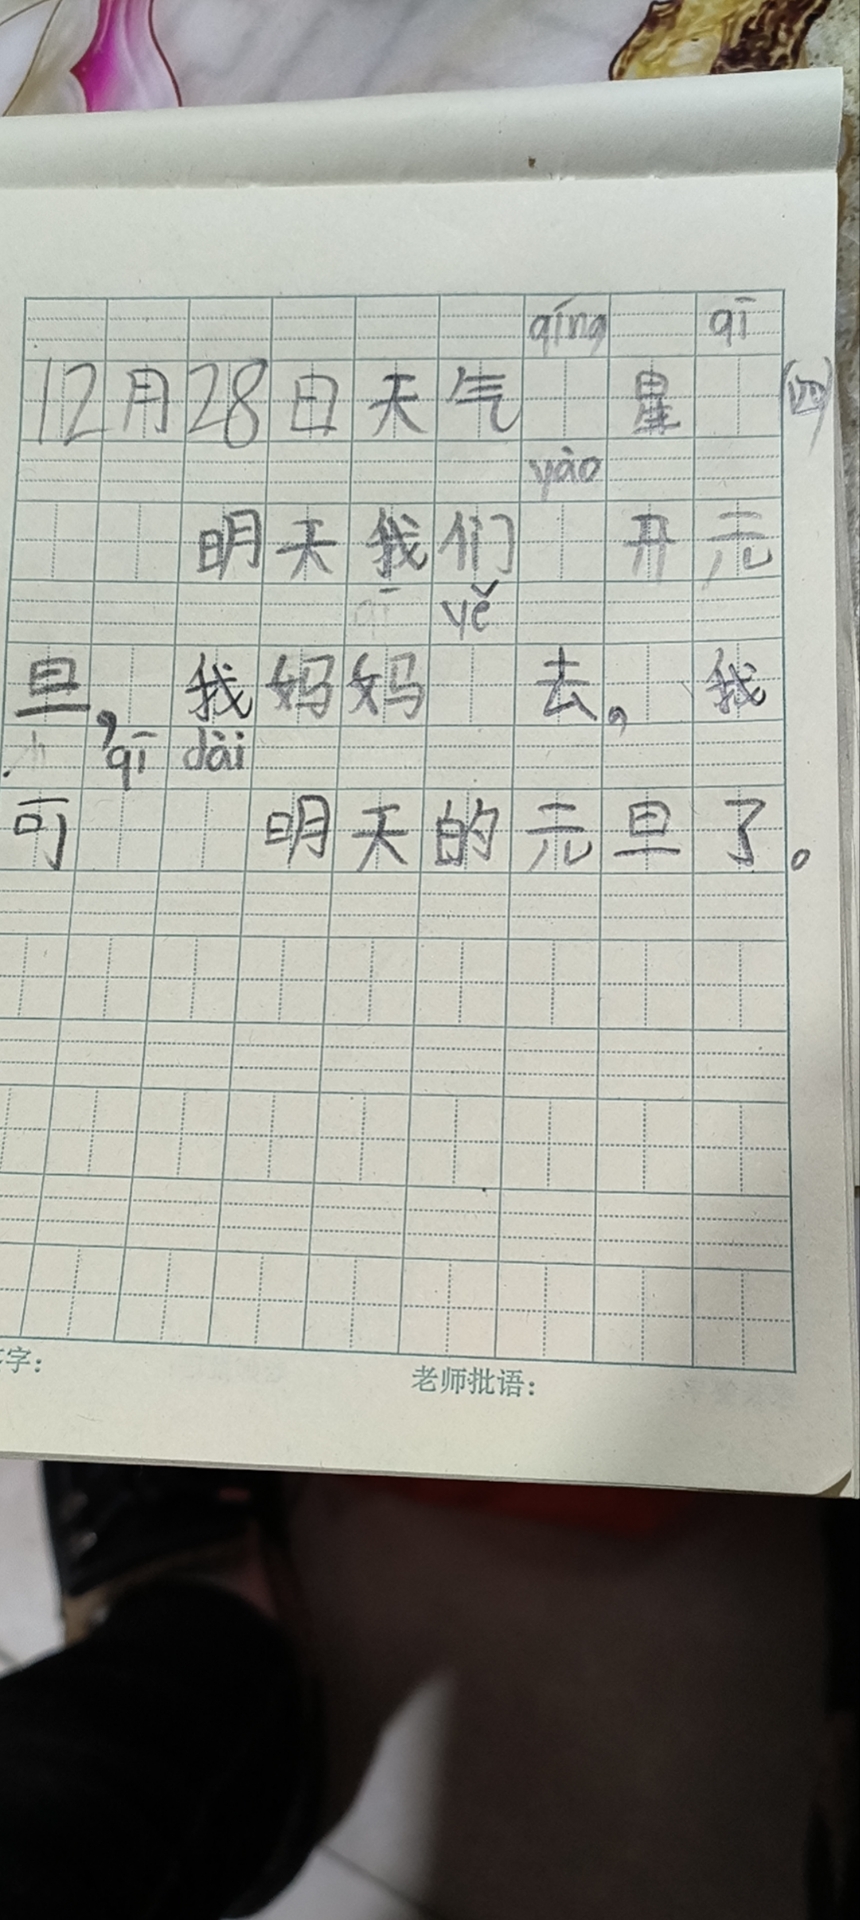 qíng qī
12月28日天气 星 (四)
yào
明天我们 开元
qī yě
旦,我妈妈 去。我
qī dài
可 明天的元旦了。
字:
老师批语: